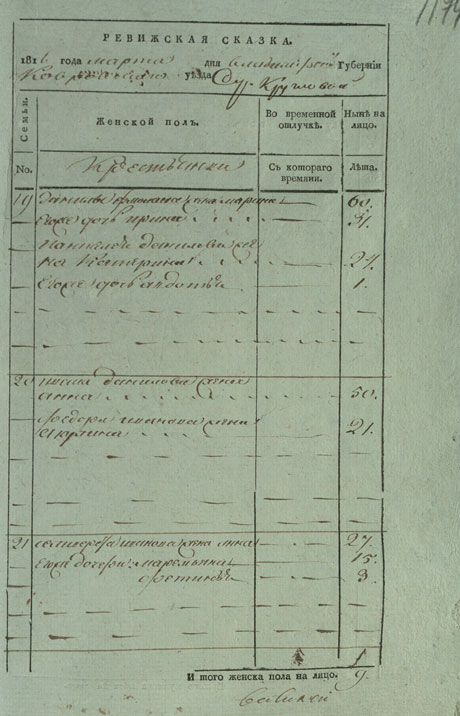 1194
РЕВИЖСКАЯ СКАЗКА.
1816 года марта дня Владимирской Губернiи
Ковровского уѣзда Дер. Кругловой
Семьи.
Женской полъ.
Во временной отлучкѣ.
Нынѣ на лицо.
No.
Крестьянки
Съ котораго времяни.
Лѣта.
19 Данилы жена Марина 60.
Ево дочь Ирина 31.
Пантелея Данилова же
на Катерина 24.
Ево дочь Авдотья 1.
20 Данилова жена
Анна 50.
Федора Иванова жена
21.
21 Иванова жена Анна 27.
Ево дочери 15.
Фетинья 3.
И того женска пола на лицо. 9.